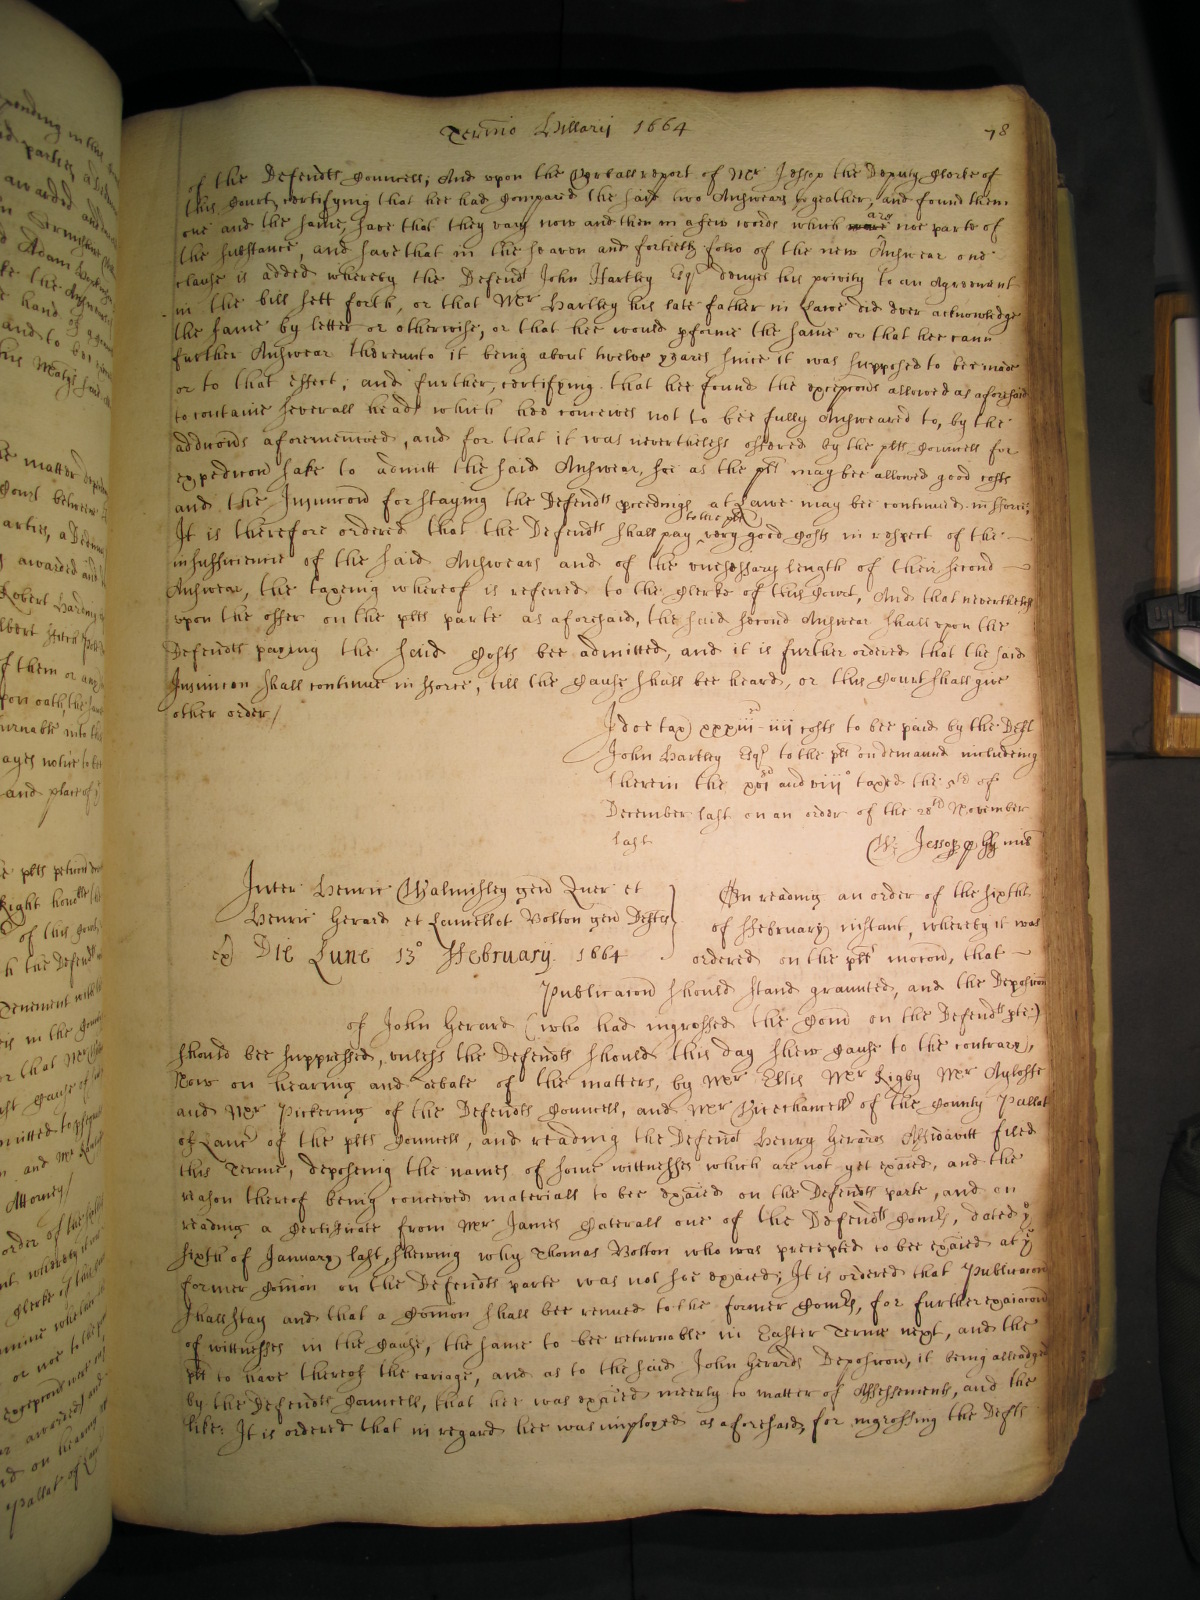 Termino Hillarij 1664
78
of the Defendts Councell; And upon the Verball report of Mr Jessop the Deputy Clerke of
this Court, certifying that hee had Compared the said two Answears togeather, and found them
one and the same, save that they vary now and then in a few words which are noe parte of
the substance, and save that in the seaven and fortieth folio of the new Answear one
clause is added whereby the Defendt John Hartley Esqr denyes his privity to an Agreement
in the bill sett forth, or that Mr Hartley his late father in Lawe did ever acknowledge
the same by letter or otherwise, or that hee would pforme the same or that hee cann
further Answear thereunto it being about twelve yeares since it was supposed to bee made
or to that effect, and further certifying that hee found the excepcions allowed as aforesaid
to containe severall heads which hee conceives not to bee fully Answeared to, by the
aforemencioned, and for that it was nevertheless offered by the plts Councell for
expedicion sake to admitt the said Answear, soe as the plt may bee allowed good costs
and the Injunccion for staying the Defendts proceedings at Lawe may bee continued in fforce;
It is therefore ordered that the Defendts shall pay to the plt very good Costs in respect of the
insufficiencie of the said Answears and of the unnecessary length of their second
Answear, the taxeing whereof is referred to the Clerke of this Court, And that nevertheless
upon the offer on the plts parte as aforesaid, the said second Answear shall upon the
Defendts paying the said Costs bee admitted, and it is further ordered that the said
Injuncion shall continue in fforce, till the Cause shall bee heard, or this Court shall give
other order/
I doe tax xxxiijs iiijd costs to bee paid by the Deft
John Hartley Esqr to the plt on demaund includeing
therein the and taxed the of
December last on an order of the 28th November
last
W: Jessop
Inter Henric Walmisley gen Quer et
Henric Gerard et Lancellot Bolton gen Defts
Die Lune 13o ffebruary 1664
On reading an order of the sixth
of ffebruary instant, whereby it was
ordered on the plts mocon, that
Publicacion should stand graunted, and the Deposicion
of John Gerard (who had ingrossed the Comon on the Defendts pte)
should bee suppressed, unless the Defendts should this day shew cause to the contrary,
Now on hearing and debate of the matters, by Mr Ellis Mr Rigby Mr Ayloffe
and Mr Pickering of the Defendts Councell, and Mr Vicechancellr of the County Pallat
of Lanc of the plts Councell, and reading the Defendt Henry Gerards Affidavitt filed
this Terme, deposeing the names of some wittnesses which are not yet exaied, and the
reason thereof being conceived materiall to bee exaied on the Defendts parte, and on
reading a Certificate from Mr James Caterall one of the Defendts Comrs, dated ye
sixth of January last, shewing why Thomas Bolton who was precepted to bee exaied at ye
former Comion on the Defendts parte was not soe exaied; It is ordered that Publicacion
shall stay and that a Comion shall bee renued to the former Comrs, for further exaiacion
of wittnesses in the Cause, the same to bee returnable in Easter Terme next, and the
plt to have thereof the cariage, and as to the said John Gerards Deposicion, it being alleadged
by the Defendts Councell, that hee was exaied meerly to matter of Assessements, and the
like: It is ordered that in regard hee was imployed as aforesaid, for ingrossing the Defts